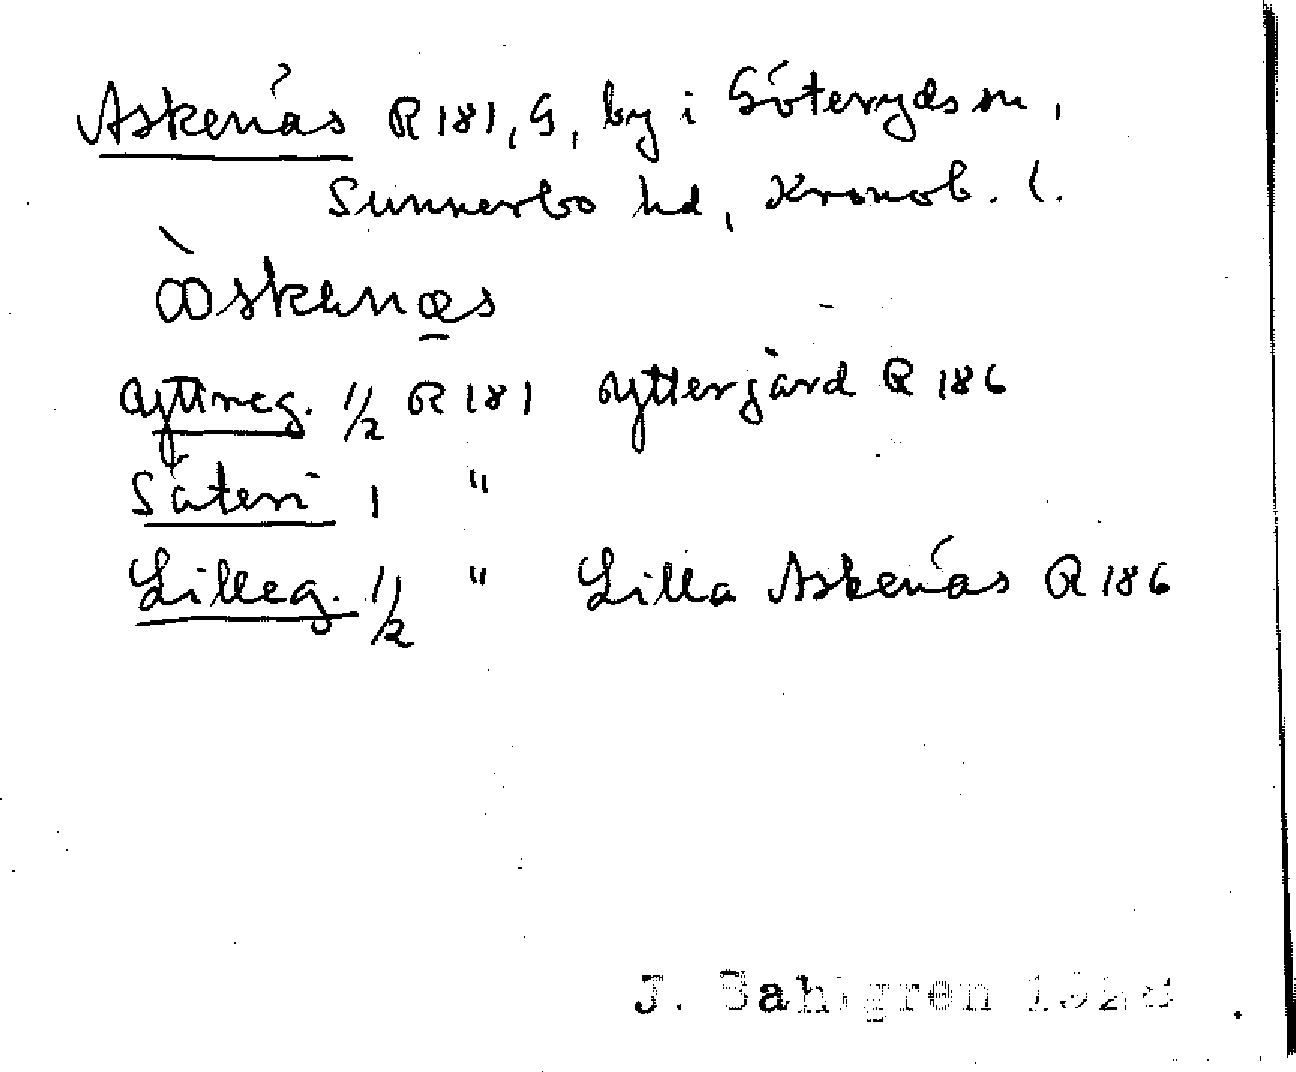 Askenäs R 181, G, by i Göteryds sn,
Sunnerbo hd, Kronob. l.
àskenæs
Yttreg. 1/2 R 181 Yttergård R 186
Säteri 1 "
Lilleg. 1/2 " Lilla Askenäs R 186
J. Sahlgren 1928